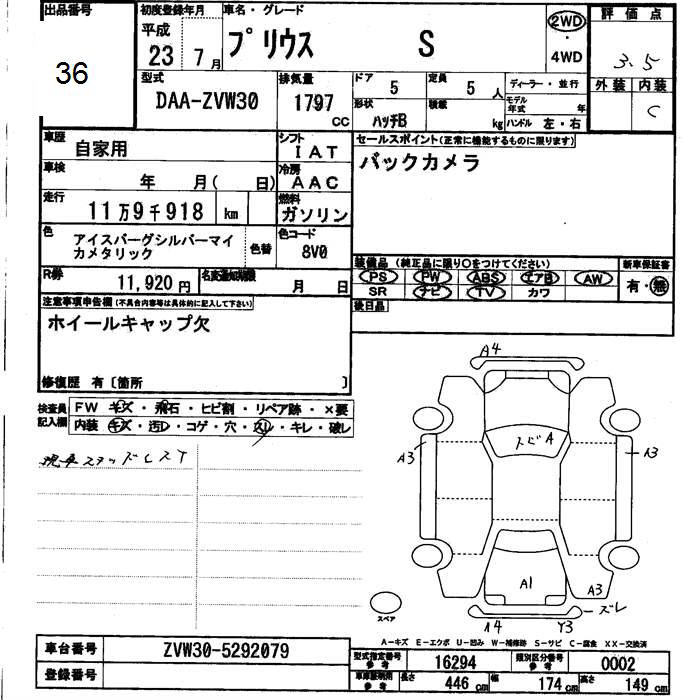 出品番号
36
初度登録年月
平成
23 7 月
車名・グレード
プリウス S
2WD
・
4WD
評価点
3.5
外装 内装
C
型式
DAA-ZVW30
排気量
1797
CC
ドア
5
定員
5 人
ディーラー・並行
形状
ハッチB
積載
kg
モデル年式 年
ハンドル 左・右
車歴
自家用
シフト
IAT
セールスポイント(正常に機能するものに限ります)
バックカメラ
車検
年 月( 日)
冷房
AAC
走行
11万9千918 km
燃料
ガソリン
色
アイスバーグシルバーマイ
カメタリック
色替
色コード
8V0
装備品 (純正品に限り○をつけてください)
PS PW ABS エアB AW
SR ナビ TV カワ
新車保証書
有・無
R券
11,920 円
名変期限
月 日
後日品
注意事項申告欄(不具合内容等は具体的に記入して下さい)
ホイールキャップ欠
修復歴 有〔箇所 〕
検査員
記入欄
FW キズ・飛石・ヒビ割・リペア跡・×要
内装 キズ・汚レ・コゲ・穴・スレ・キレ・破レ
現車スタッドレスT
A4
スビA
A3
A3
A1
A3
ズレ
A4
Y3
スペア
A-キズ E-エクボ U-凹み W-補修跡 S-サビ C-腐食 XX-交換済
車台番号
ZVW30-5292079
登録番号
型式指定番号
参考
16294
類別区分番号
参考
0002
車庫証明用
参考
長さ 446 cm
幅 174 cm
高さ 149 cm